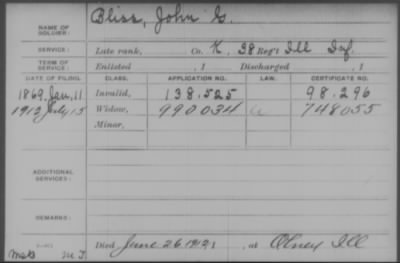 NAME OF SOLDIER: Bliss, John G.
SERVICE: Late rank, Co. K, 38 Reg't Ill Inf.
TERM OF SERVICE: Enlisted , 1 Discharged , 1
DATE OF FILING. CLASS. APPLICATION NO. LAW. CERTIFICATE NO.
1869, Jan, 11 Invalid, 138.525 98.296
1912 July 15 Widow, 990034 a 748055
Minor,
ADDITIONAL SERVICES:
REMARKS:
Died June 26 1912, at Olney Ill